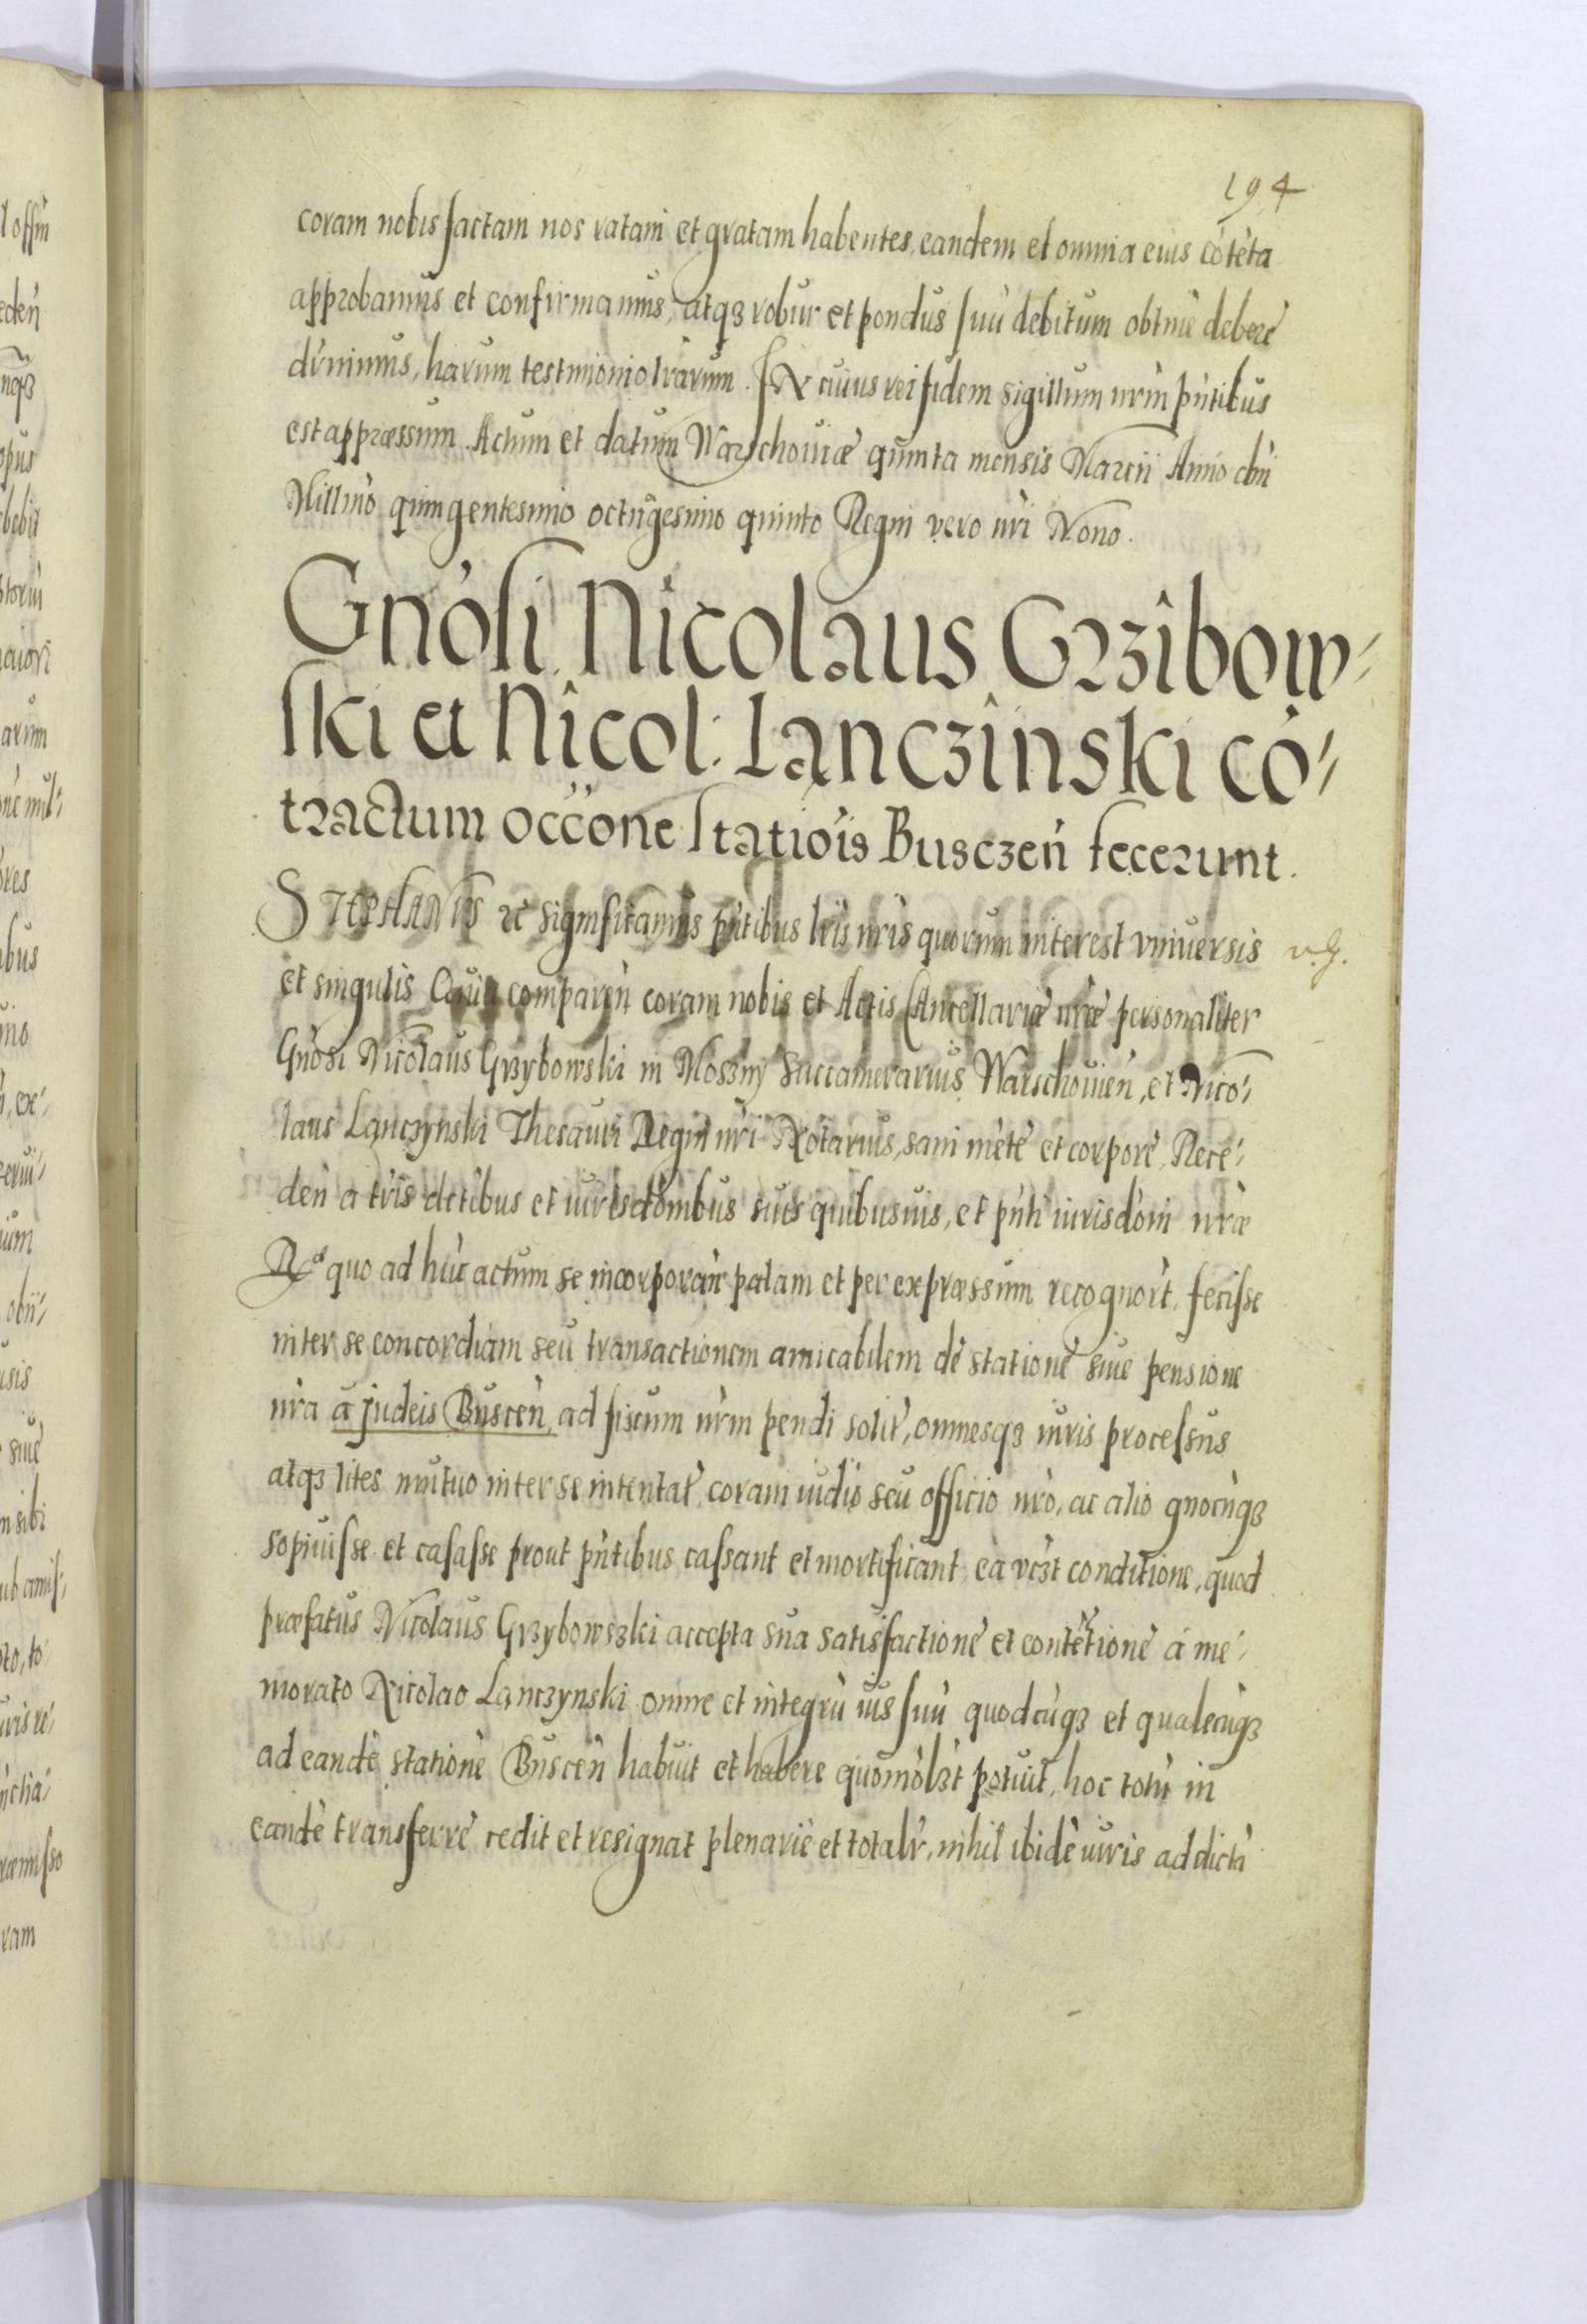 194
coram nobis factam nos ratam et gratam habentes, eandem et omnia eius cōtēta
approbamus et confirmamus, atqȝ robur et pondus suū debitum obtnīe deberē
dūnimus, harum testimonio lrārum. IN cuius rei fidem sigillum nrm̄ pn̄tibus
est appræssum. Actum et datum Warschouiæ quinta mensis Marcii Anno dn̄i
Millmō quingentesimo octūgesimo quinto Regni vero nr̄i Nono.
Gnōsi Nicolaus Grzibow-
ski et Nicol: Lanczinski cō-
tractum occōne statiōis Busczen̄ fecerunt.
STEPHANUS ꝛc significamus pn̄tibus lris nr̄is quorum interest vniuersis
et singulis Quia comparen̄ coram nobis et Actis Cancellariæ nr̄æ personaliter
Gnōsi Nicolaus Grzybowski in Moszny Succamerarius Warschouien̄, et Nico-
laus Lanczynski Thesauri Regni nr̄i Notarius, sani mēte et corpore, Rece-
den̄ a tr̄is dctībus et iurisdōnibus suis quibusuis, et pn̄ti iurisdōni nr̄æ
quo ad hūc actum se incorporan̄ palam et per expræssum recognort̄, fecisse
inter se concordiam seu transactionem amicabilem dē statione siue pensione
nr̄a ā judeis Buscen̄, ad fiscum nrm̄ pendi solit̄, omnesqȝ iuris processus
atqȝ lites mutuo inter se intentat̄, coram iudio seu officio nrō, ac alio qnocūqȝ
sopiuisse et casasse prout pn̄tibus cassant et mortificant, eā vcȝt conditione, quod
præfatus Nicolaus Grzybowszki accepta sua satisfactionē et contētionē ā me-
morato Nicolao Lanczynski omne et integrū ius suū quodcūqȝ et qualecūqȝ
ad eandē stationē Buscen̄ habuit et habere quomōlȝt potuit, hoc totū in
eandē transferrē cedit et resignat plenariē et totalr̄, nihil ibidē iuris ad dictā